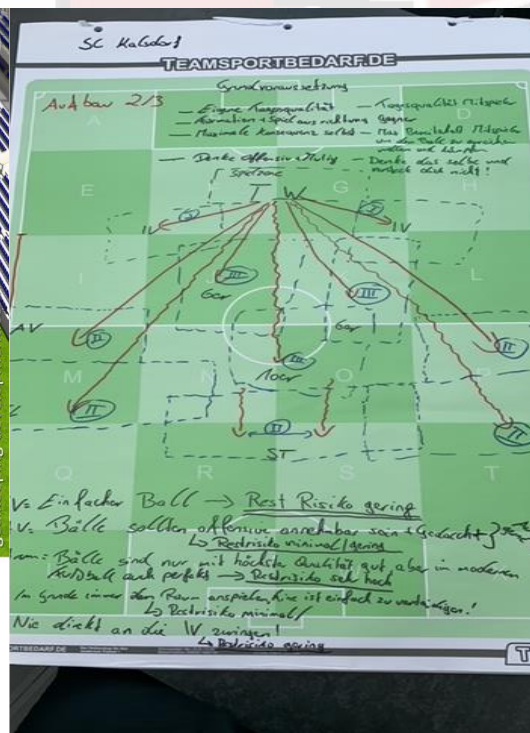 SC Kalsdorf
TEAMSPORTBEDARF.DE
Grundvoraussetzung
Aufbau 2/3
— Eigene Passqualität — Passqualität Mitspieler
— Formation + Spielausrichtung Gegner
— Maximale Konsequenz selbst — Max Bereitschaft Mitspieler
um den Ball zu
wollen und kämpfen
— Denke Offensiv + Mutig — Denke das selbe und
dich nicht!
Spielzone
A
E
G
H
T W
I
IV
I
IV
I
J
L
III
6er
III
6er
AV
II
II
M
N
O
P
III
10er
II
II
ST
Q
R
S
T
IV = Einfacher Ball → Rest Risiko gering
Bälle sollten offensive annehmbar sein +
↳ Restrisiko minimal/gering
Bälle sind nur mit höchste Qualität gut, aber im modernen
Fußball auch perfekt → Restrisiko sehr hoch
Im Grunde immer den Raum anspielen, ist einfach zu verteidigen!
↳ Restrisiko minimal
Nie direkt an die IV zwingen!
↳ Restrisiko gering
RTBEDARF.DE